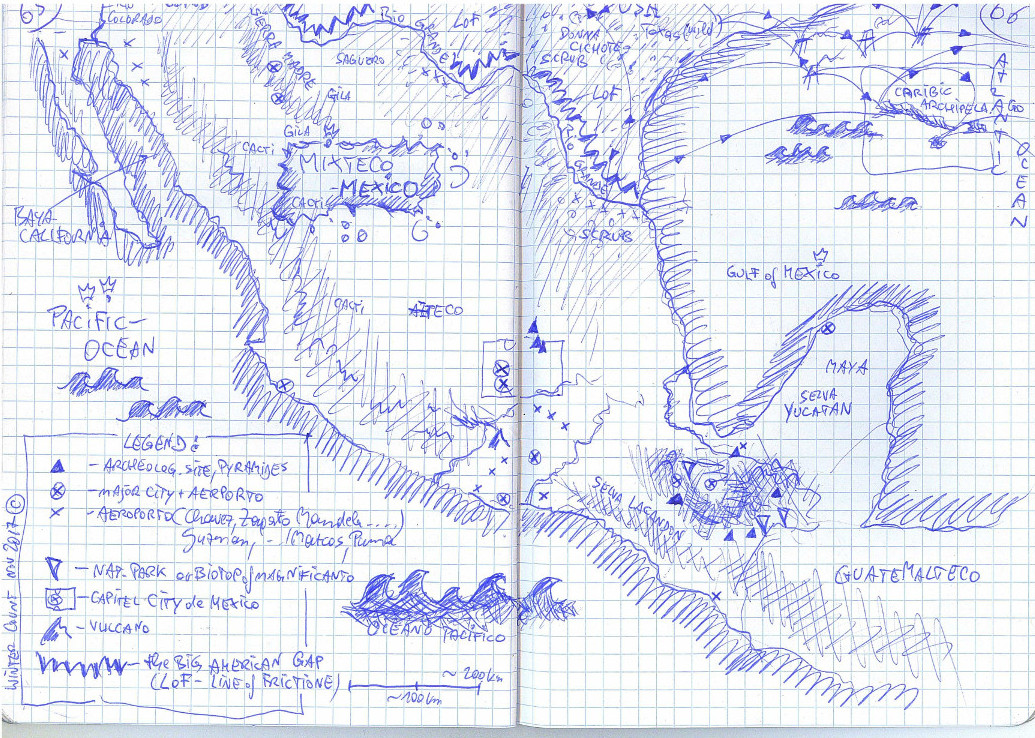 65
COLORADO
SIERRA MADRE
RIO GRANDE
LOF
SAGUERO
GILA
GILA
CACTI
MIXTECO
-MEXICO
CACTI
BAYA-
CALIFORNIA
CACTI
AZTECO
PACIFIC-
OCEAN
LEGEND:
- ARCHEOLOG. SITE, PYRAMIDES
- MAJOR CITY + AERPORTO
- AEROPORTO (Chavez, Zapato Mandela ....)
Guzman, - Marcos, Puma
- NAT-PARK or BIOTOP of MAGNIFICANTO
- CAPITEL CITY de MEXICO
- VULCANO
- the BIG AMERICAN GAP
(LOF - LINE of FRICTIONE)
~ 200 km
~100 km
OCEANO PACIFICO
WINTER COUNT NOV 2017 ©
66
USA
DONNA
CICHOTE
SCRUB
TEXAS (wild)
LOF
GRANDE
SCRUB
CARIBIC
ARCHIPELAGO
ATLANTIC
OCEAN
GULF of MEXICO
MAYA
SELVA
YUCATAN
SELVA LACANDON
GUATEMALTECO